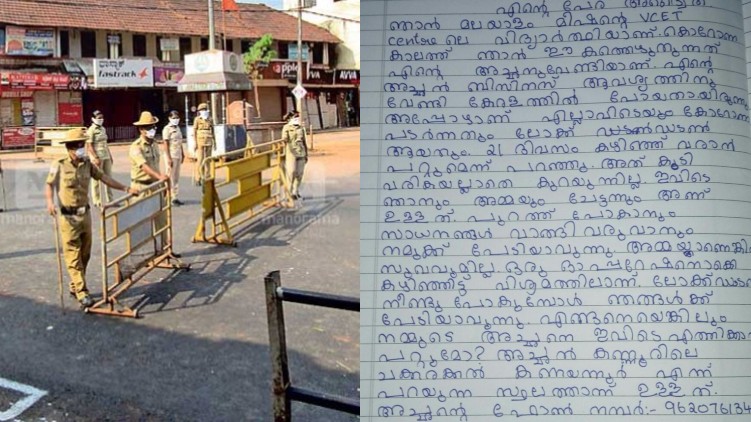 fastrack
apple
AVVA
manorama
manorama
എന്റെ പേര് അഭിജിത്
ഞാൻ മലയാളം മിഷന്റെ VCET
centre ലെ വിദ്യാർത്ഥിയാണ്. കൊറോണ
കാലത്ത് ഞാൻ ഈ കത്തെഴുതുന്നത്
എന്റെ അച്ഛനുവേണ്ടിയാണ്. എന്റെ
അച്ഛൻ ബിസിനസ് ആവശ്യത്തിനു
വേണ്ടി കേരളത്തിൽ പോയതായിരുന്നു
അപ്പോഴാണ് എല്ലായിടെയും കോറോണ
പടർന്നതും ലോക്ക് ഡൗൺ
ആയതും. 21 ദിവസം കഴിഞ്ഞ് വരാൻ
പറ്റുമെന്ന് പറഞ്ഞു. അത് കൂടി
വരികയല്ലാതെ കുറയുന്നില്ല. ഇവിടെ
ഞാനും അമ്മയും ചേട്ടനും ആണ്
ഉള്ളത് പുറത്ത് പോകാനും
സാധനങ്ങൾ വാങ്ങി വരുവാനും
നമുക്ക് പേടിയാവുന്നു. അമ്മയ്ക്കാണെങ്കി
സുഖവുമില്ല. ഒരു ഓപ്പറേഷനൊക്കെ
കഴിഞ്ഞിട്ട് വിശ്രമത്തിലാണ്. ലോക്ക്ഡൗൺ
നീണ്ടു പോകുമ്പോൾ ഞങ്ങൾക്ക്
പേടിയാവുന്നു. എങ്ങനെയെങ്കിലും
നമ്മുടെ അച്ഛനെ ഇവിടെ എത്തിക്കാ
പറ്റുമോ? അച്ഛൻ കണ്ണൂരിലെ
ചക്കരക്കൽ കണയന്നൂർ എന്ന്
പറയുന്ന സ്ഥലത്താണ് ഉള്ളത്.
അച്ഛന്റെ ഫോൺ നമ്പർ:- 962076134